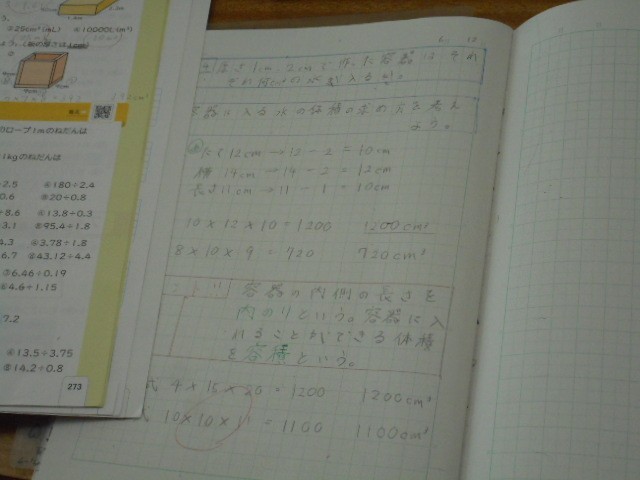 ②25cm³(mL) ④10000L(cm³)
のロープ1mのねだんは
1kgのねだんは
÷2.5 ④180÷2.4
0.6 ⑧20÷0.8
÷8.6 ④13.8÷0.3
3.1 ⑧95.4÷1.8
4.3 ④3.78÷1.8
6.7 ⑧43.12÷4.4
③6.46÷0.19
⑥4.6÷1.15
÷7.2
④13.5÷3.75
⑧14.2÷0.8
273
容器に入る水の体積の求め方を考え
よう。
たて12cm→12-2=10cm
横14cm→14-2=12cm
長さ11cm→11-1=10cm
10×12×10=1200 1200cm³
8×10×9=720 720cm³
容器の内側の長さを
内のりという。容器に入
れることができる体積
を容積という。
式 4×15×20=1200 1200cm³
10×10×11=1100 1100cm³